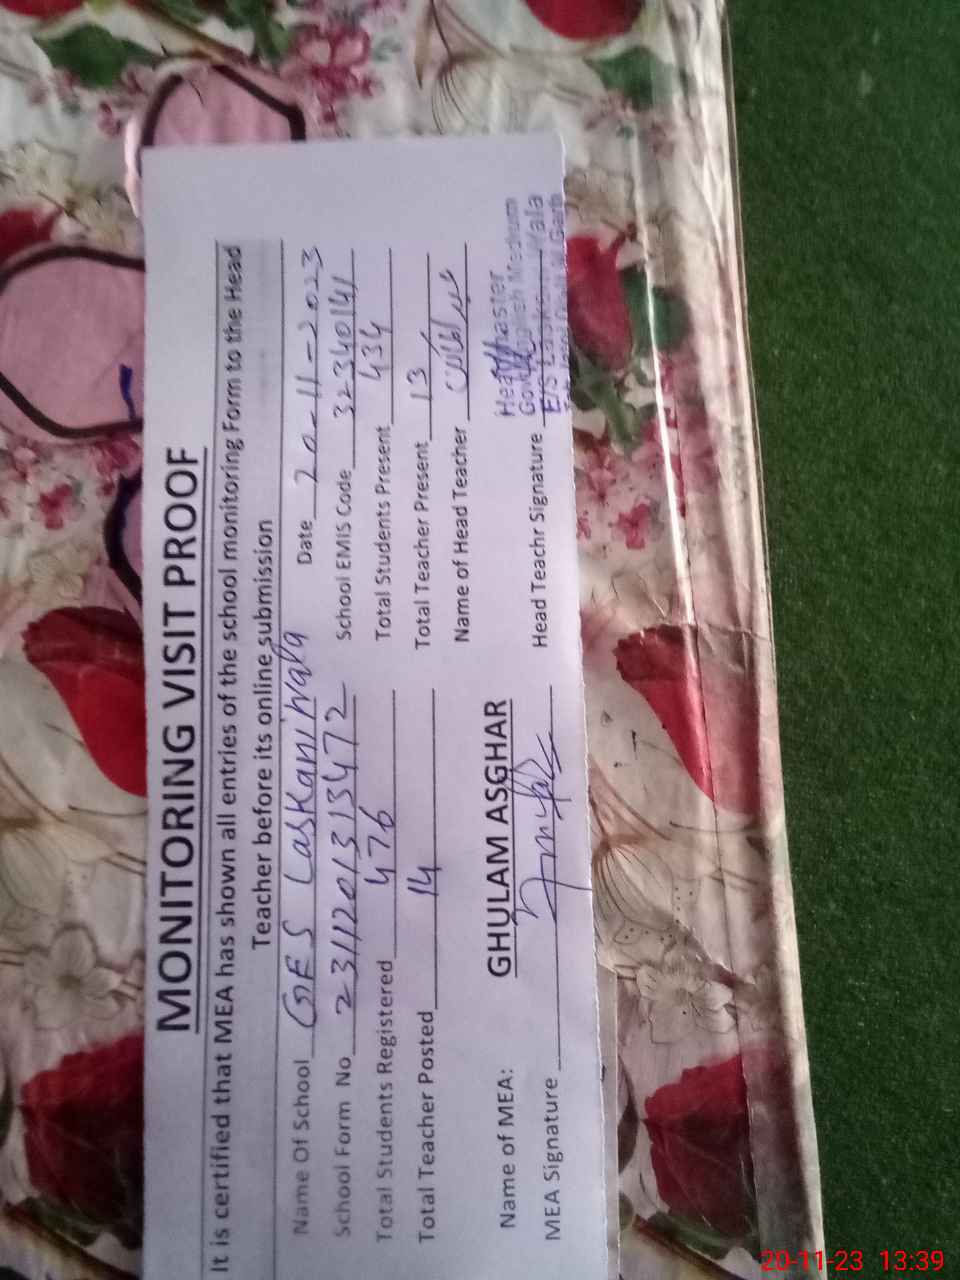 MONITORING VISIT PROOF
It is certified that MEA has shown all entries of the school monitoring Form to the Head
Teacher before its online submission
Name Of School GES Laskaniwala Date 20-11-2023
School Form No 2311201313472 School EMIS Code 32340141
Total Students Registered 476 Total Students Present 434
Total Teacher Posted 14 Total Teacher Present 13
Name of Head Teacher
Name of MEA: GHULAM ASGHAR
Headmaster
Govt. English Medium
MEA Signature Head Teachr Signature E/S Laskani Wala
20-11-23 13:39